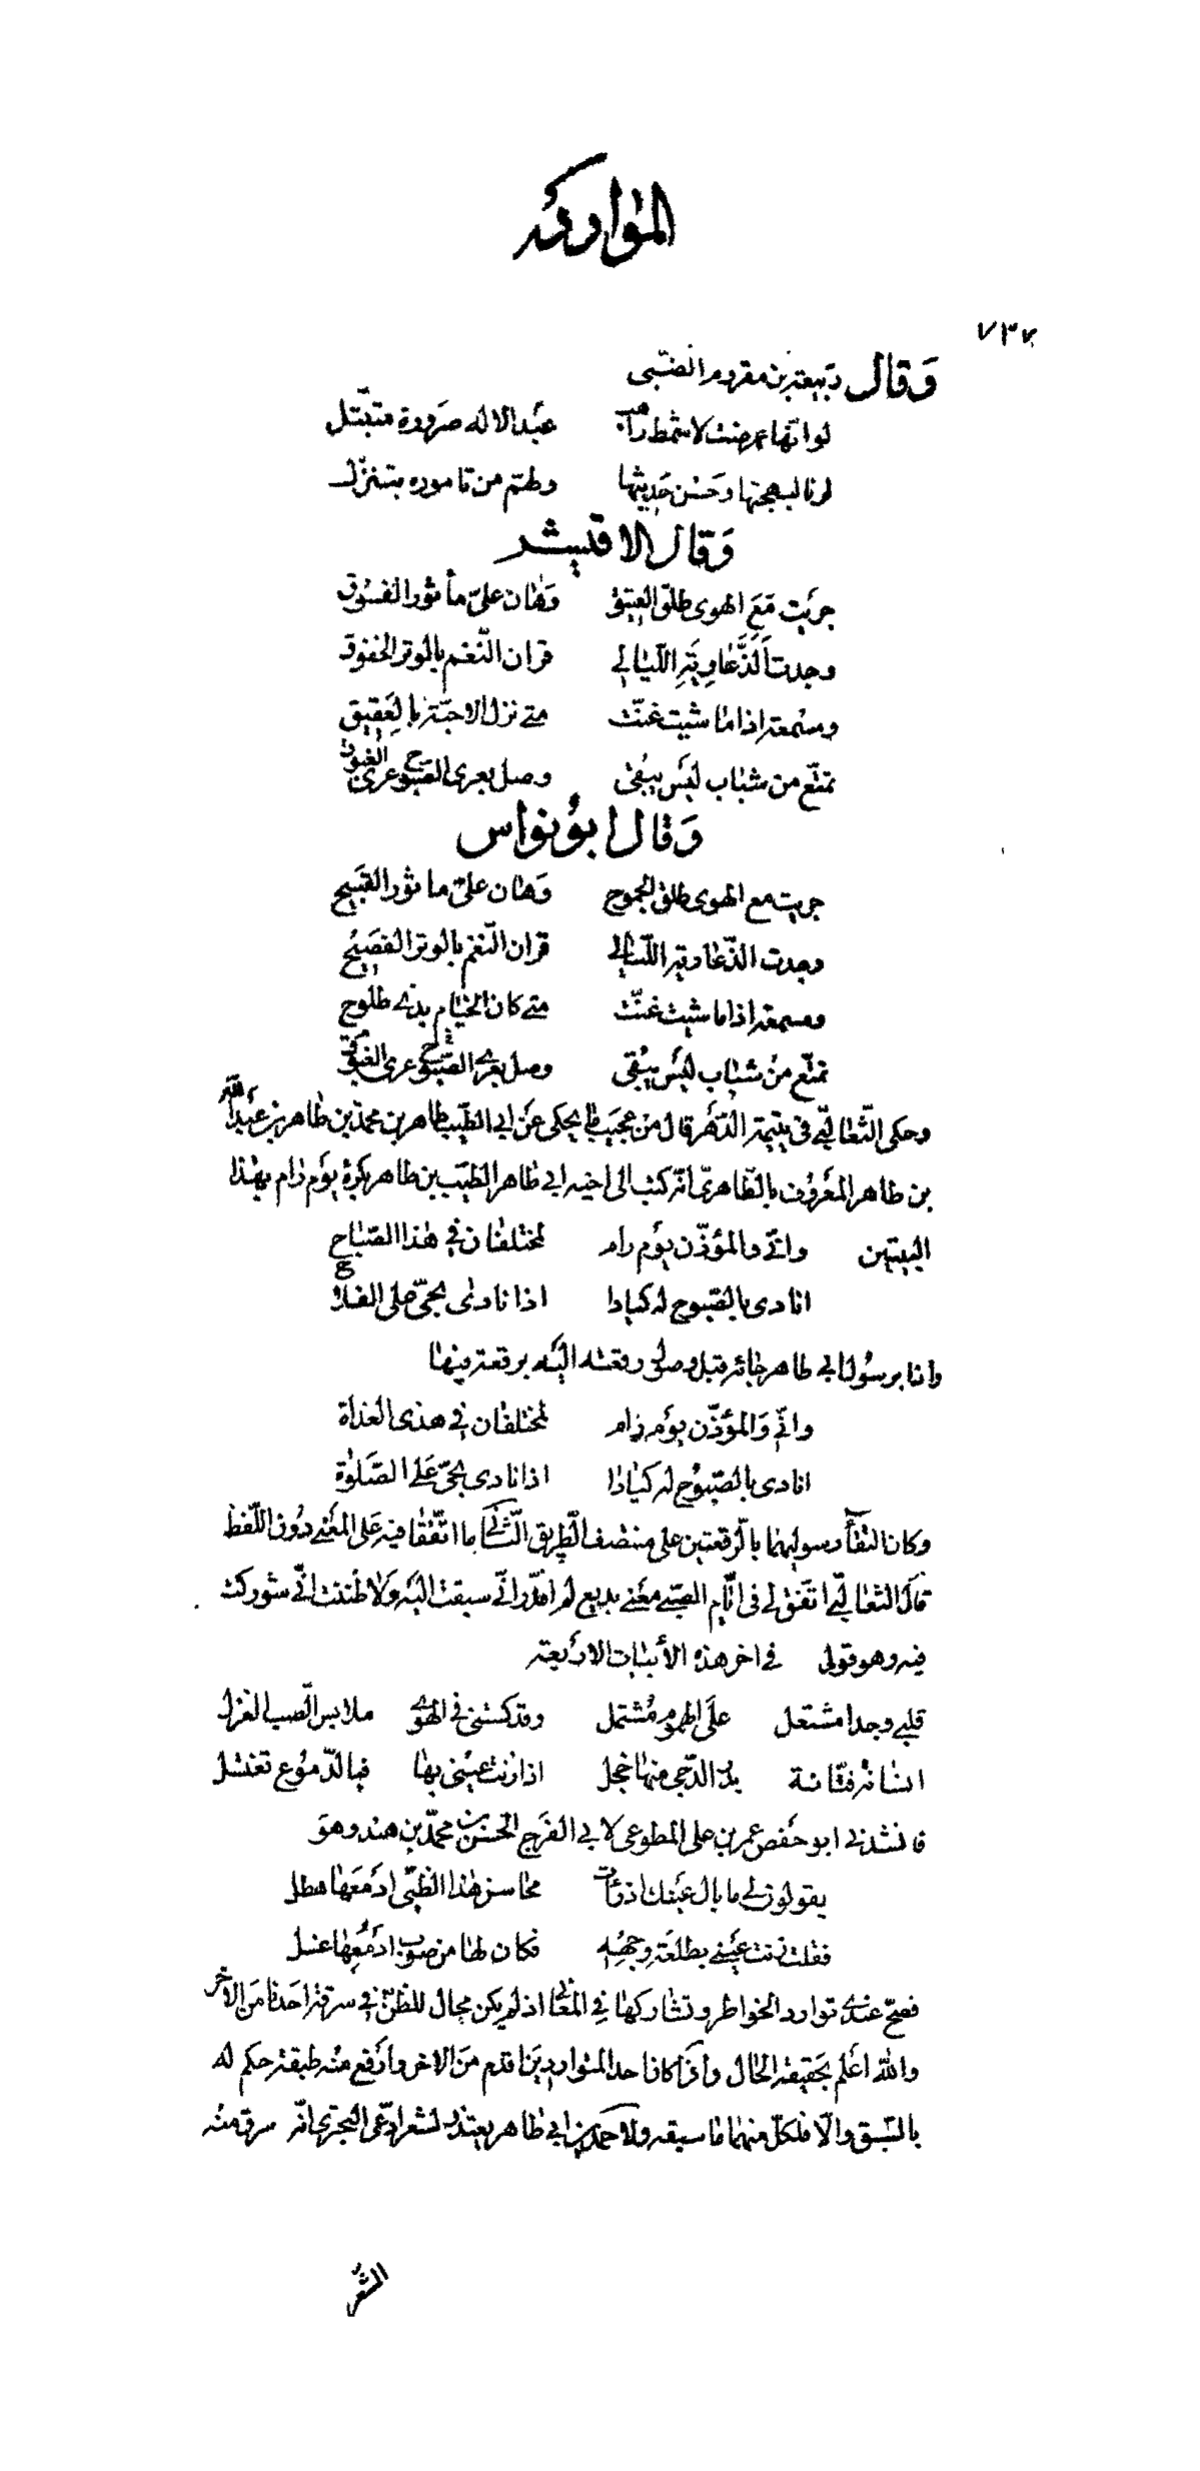 المواردة
٧٣٧
وَقال ربيعة بن مقروم الضبّى
لو انّها عرضت لاشمط راهب عبد الاله صرورة متبتّل
لرنا لبهجتها وحسن حديثها ولهمّ من تاموره بتنزّل
وَقال الاقيشر
جريت مَعَ الهوى طلق العتيق وهَان علىّ مأثور الفسوق
وجدت ألذّ عارية الليالي قران النّغم بالوتر الخفوق
ومسمعة اذا ما شيت غنّت متى نزل الاحبّة بالعقيق
تمتّع من شباب ليس يبقى وصل بعرى الصبوح عرى الغبوق
وَقال ابو نواس
جريت مع الهوى طلق الجموح وَهان علىّ ماثور القبيح
وجدت الذّ عارية اللّيالي قران النّغم بالوتر الفصيح
ومسمعة اذا ما شيت غنّت متى كان الخيام بذى طلوح
تمتّع من شباب ليس يبقى وصل بعرى الصبوح عرى الغبوق
وحكى الثّعالبىّ فى يتيمة الدّهر قال من عجيب ما يحكى عن ابى الطّيب طاهر بن محمّد بن طاهر بن عبد الله
بن طاهر المعروف بالطّاهرىّ انّه كتب الى اخيه ابى طاهر الطيّب بن طاهر بكرة يوم رام بهذا
البيتين وانّى والمؤذّن يوم رام لمختلفان فى هذا الصّباح
انادى بالصّبوح له كيادا اذا نادى بحىّ على الفلاح
واذا برسول ابى طاهر جائه قبل وصول رقعته اليه برقعة فيها
وانّى وَالمؤذّن يوم رام لمختلفان فى هذى الغداة
انادى بالصّبوح له كيادا اذا نادى بحىّ عَلى الصّلوة
وكان التقاء رسوليهما بالرّقعتين على منتصف الطّريق الثّعالبى ما اتّفقا فيه على المعنى دون اللّفظ
قال الثعالبىّ اتّفق لى فى ايّام الصبى معنى بديع لم اقدّر انّى سبقت اليه ولا ظننت انّى شوركت
فيه وهو قولى فى اخر هذه الأبيات الاربعة
قلبى وجدا مشتعل على الهموم مُشتمل وقد كستنى فى الهوى ملابس الصب الغزل
انسانة فتّانة بدر الدّجى منها خجل اذا زنت عينى بها فبالدّموع تغتسل
فانشدنى ابو حفص عمر بن على المطوعى لابى الفرج الحسين بن محمّد بن هندو وهو
يقولون لى ما بال عينك اذ رأت محاسن هذا الظّبى ادمعها هطل
فقلت زنت عينى بطلعة وجهه فكان لها من صوب ادمعها غسل
فصحّ عندى توارد الخواطر وتشاركها فى المعانى اذ لم يكن مجال للظنّ فى سرقة احدنا من الآخر
والله اعلم بحقيقة الحال واذا كان احد المتواردين اقدم من الاخر وارفع منه طبقة حكم له
بالسّبق والّا فلكلّ منهما ما سبقه ولاحمد بن ابى طاهر يعتذر لشعر ادّعى البحترى انّه سرقه منه
الشعر